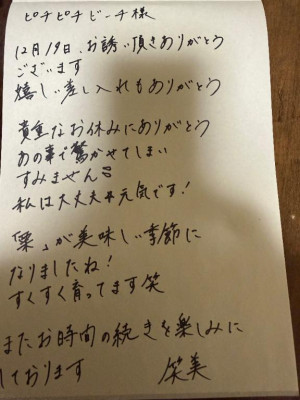 ピチピチビーチ様
12月19日、お誘い頂きありがとう
ございます
嬉しい差し入れもありがとう
貴重なお休みにありがとう
あの事で驚かせてしまい
すみません
私は大丈夫 元気です!
「栗」が美味しい季節に
なりましたね!
すくすく育ってます笑
またお時間の続きを楽しみに
しております
笑美